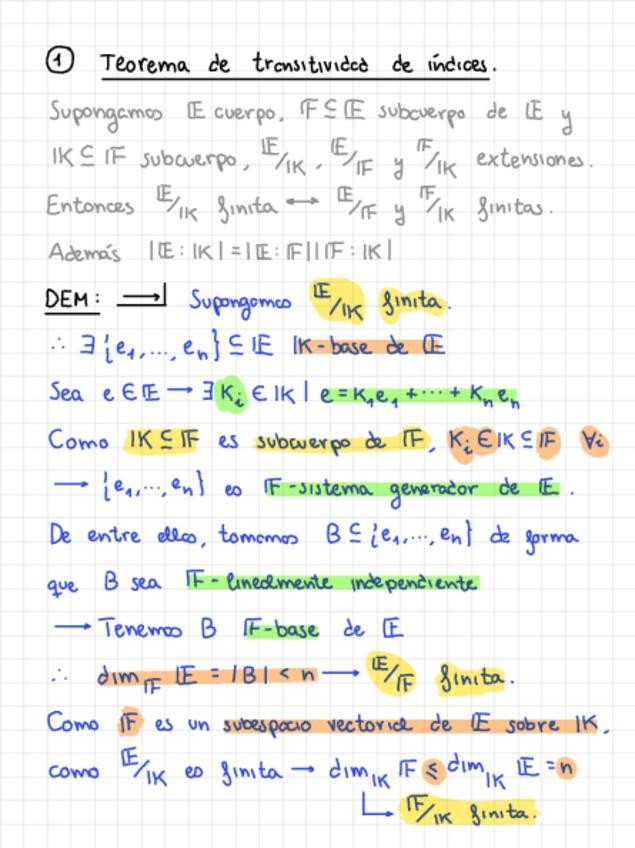 ① Teorema de transitividad de índices.
Supongamos 𝔼 cuerpo, 𝔽 ⊆ 𝔼 subcuerpo de 𝔼 y
𝕂 ⊆ 𝔽 subcuerpo, 𝔼/𝕂, 𝔼/𝔽 y 𝔽/𝕂 extensiones.
Entonces 𝔼/𝕂 finita ⟷ 𝔼/𝔽 y 𝔽/𝕂 finitas.
Además |𝔼 : 𝕂| = |𝔼 : 𝔽| |𝔽 : 𝕂|
DEM: ⟶| Supongamos 𝔼/𝕂 finita.
∴ ∃ {e₁, ..., eₙ} ⊆ 𝔼 𝕂-base de 𝔼
Sea e ∈ 𝔼 → ∃ Kᵢ ∈ 𝕂 | e = K₁e₁ + ··· + Kₙeₙ
Como 𝕂 ⊆ 𝔽 es subcuerpo de 𝔽, Kᵢ ∈ 𝕂 ⊆ 𝔽 ∀i
→ {e₁, ..., eₙ} es 𝔽-sistema generador de 𝔼.
De entre ellos, tomamos B ⊆ {e₁, ..., eₙ} de forma
que B sea 𝔽-linealmente independiente
→ Tenemos B 𝔽-base de 𝔼
∴ dim_𝔽 𝔼 = |B| < n → 𝔼/𝔽 finita.
Como 𝔽 es un subespacio vectorial de 𝔼 sobre 𝕂,
como 𝔼/𝕂 es finita → dim_𝕂 𝔽 ≤ dim_𝕂 𝔼 = n
↳ 𝔽/𝕂 finita.